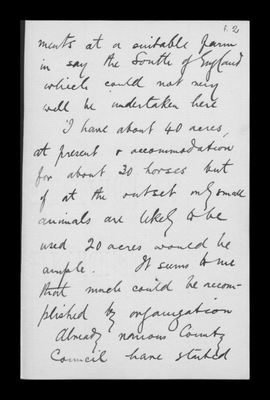 f. 2)
ments at a suitable farm
in say the South of England
which could not very
well be undertaken here
I have about 40 acres,
at present & accommodation
for about 30 horses but
if at the outset only small
animals are likely to be
used 20 acres would be
ample. It seems to me
that much could be accom-
plished by organisation
Already various County
Council have started